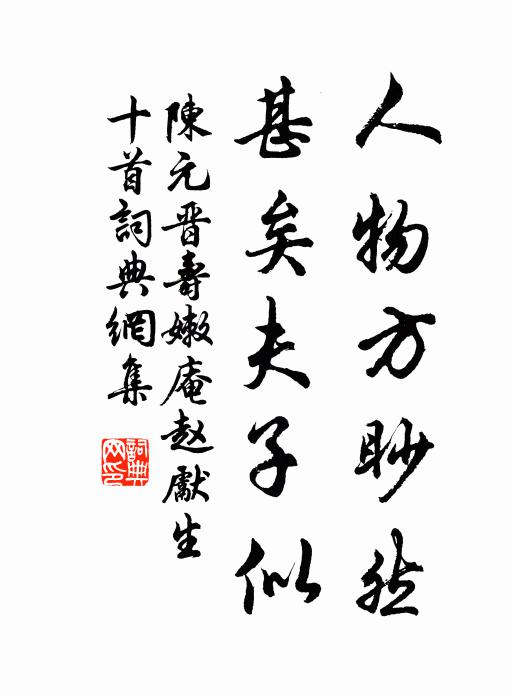 人物方眇然
甚矣夫子似
陳元晋壽嫩庵赵獻生
十首詞典網集
詞典網印